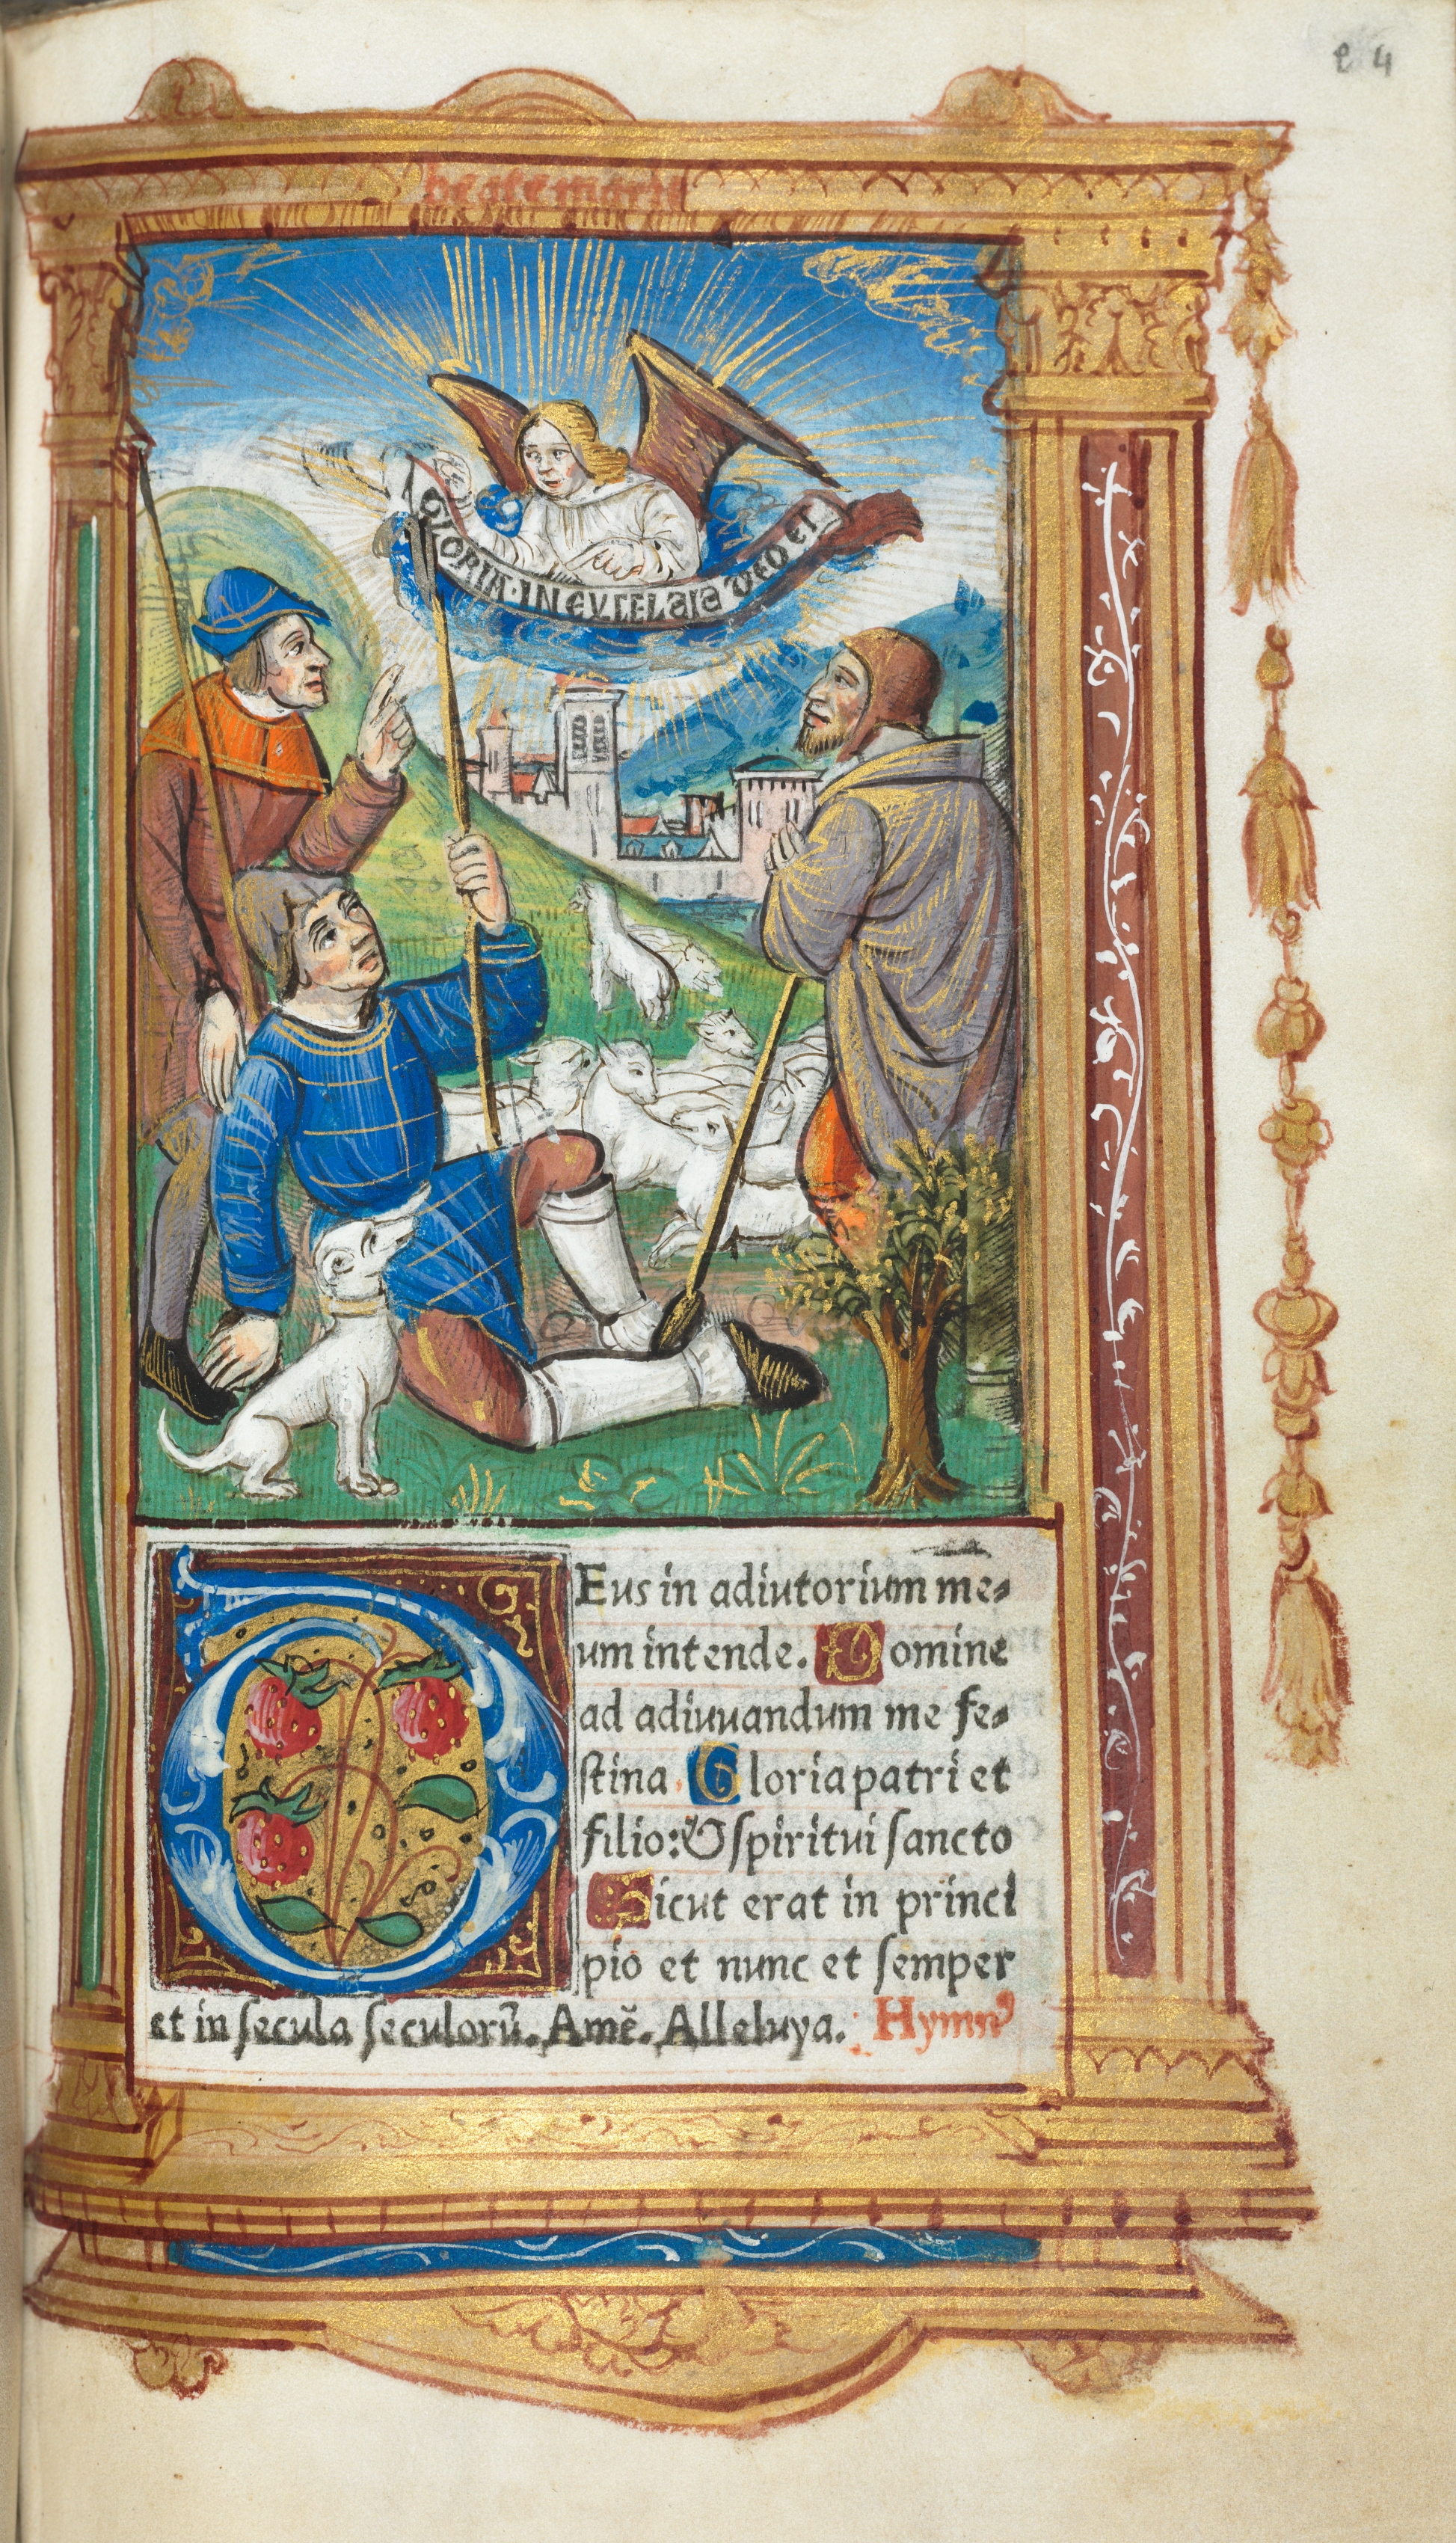 e 4
beate marie
GLORIA·IN EVCCELSIS DEO ET
DEus in adiutorium me-
um intende. Domine
ad adiuuandum me fe-
stina. Gloria patri et
filio: & spiritui sancto
Sicut erat in princi
pio et nunc et semper
et in secula seculorū. Amē. Alleluya. Hymnꝰ